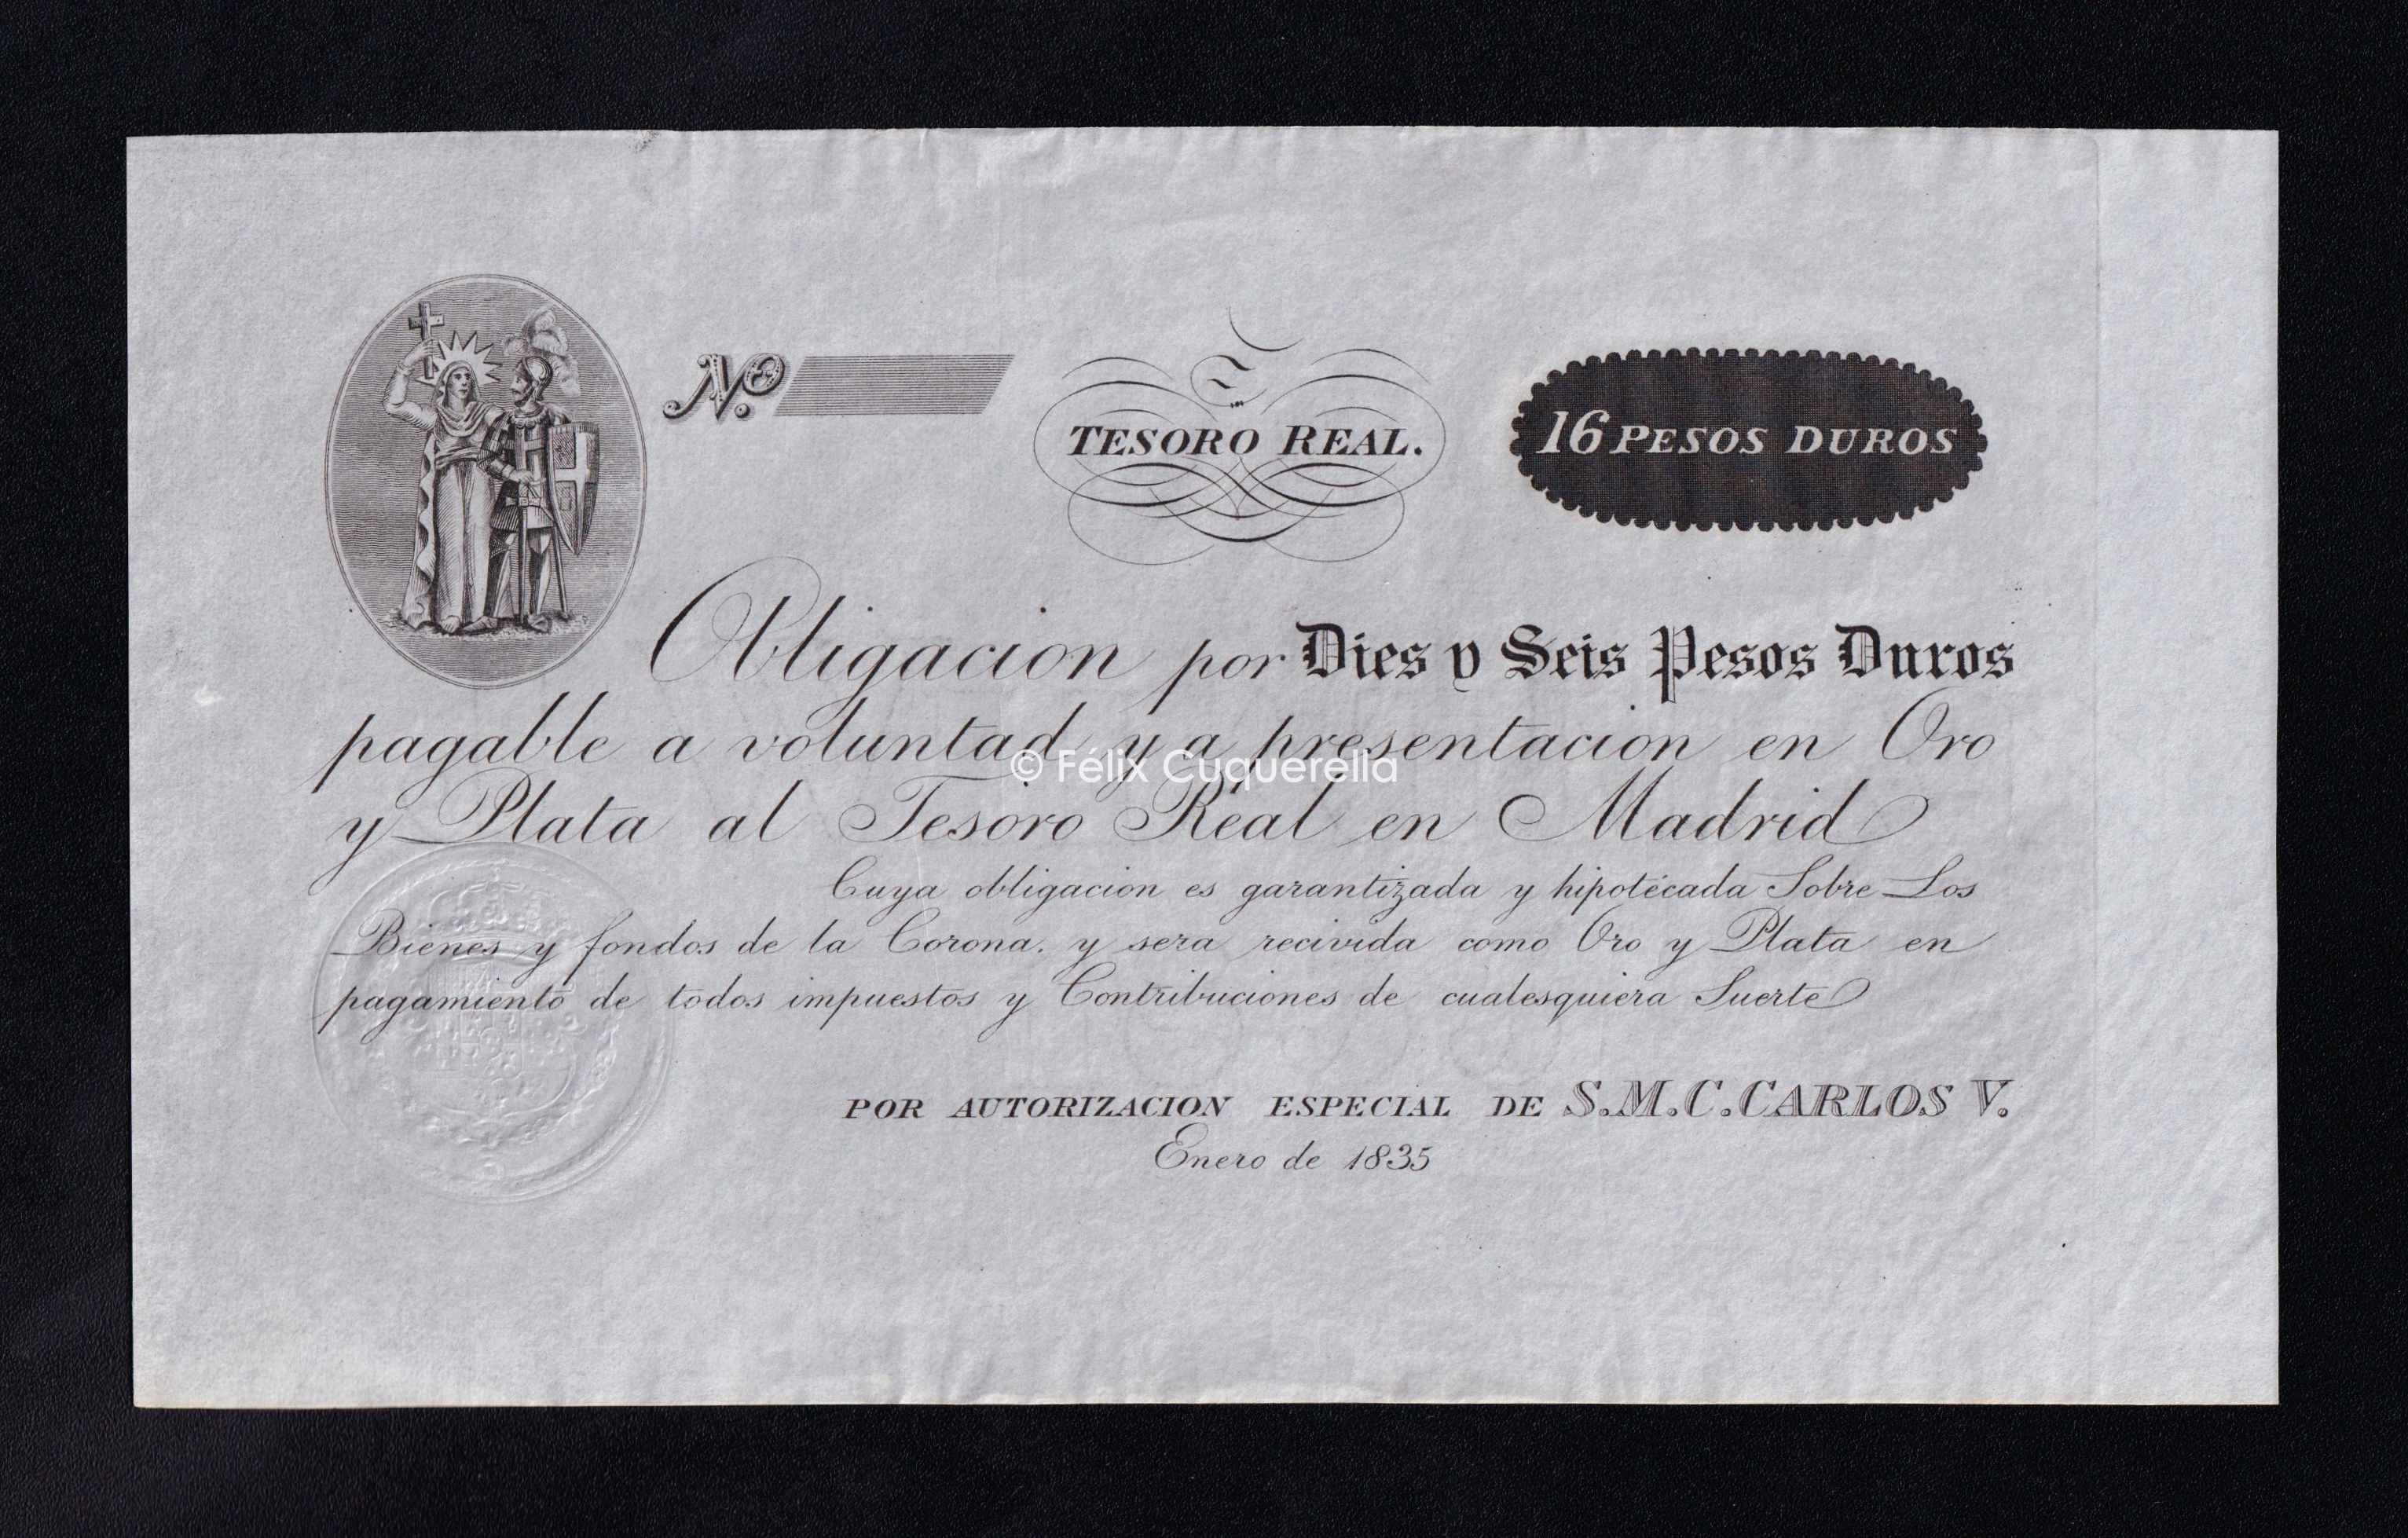 Nº.
TESORO REAL.
16 PESOS DUROS
Obligacion por Dies y Seis Pesos Duros
pagable a voluntad y a presentacion en Oro
© Félix Cuquerella
y Plata al Tesoro Real en Madrid
Cuya obligacion es garantizada y hipotécada Sobre Los
Bienes y fondos de la Corona. y sera recivida como Oro y Plata en
pagamiento de todos impuestos y Contribuciones de cualesquiera Suerte
POR AUTORIZACION ESPECIAL DE S.M.C.CARLOS V.
Enero de 1835